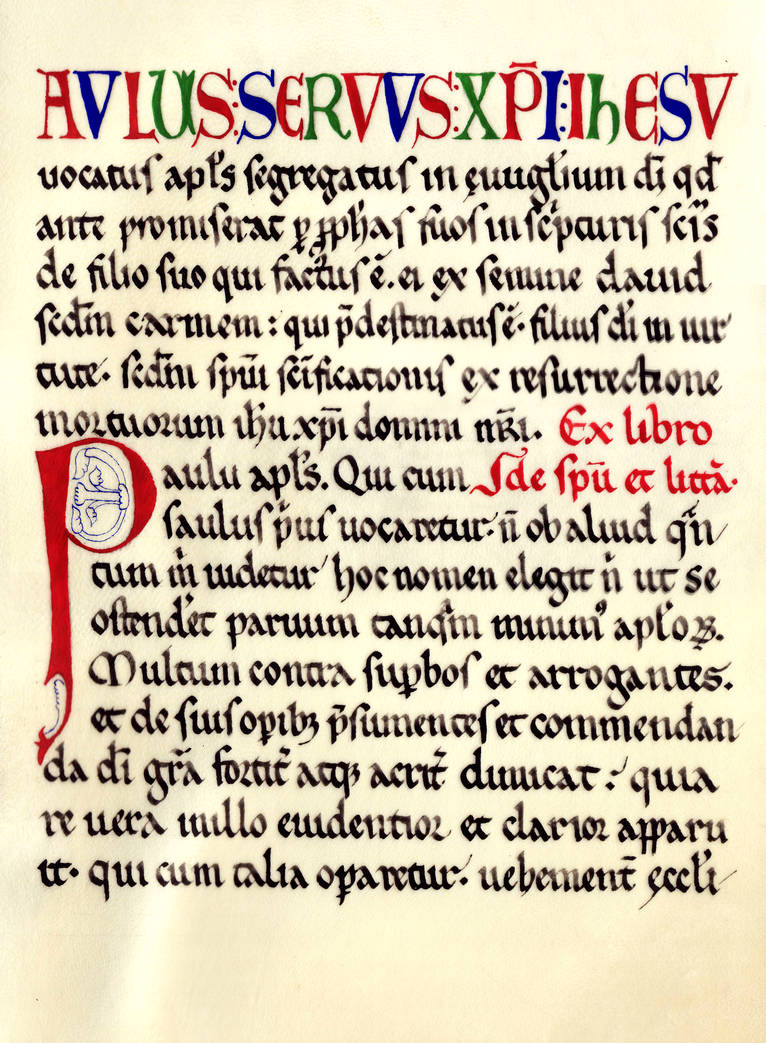 AVLUS:SERVVS:XP̄I:IhESV
uocatus apl's segregatus in ęuugl'ium dī qd
ante promiserat ꝑ ꝓph'as suos in sc'pturis sc̄is
de filio suo qui factus ē. ei ex semine dauid
scd̄m carnem: qui p̄destinatus ē. filius dī in uir
tute. scd̄m sp̄m sc̄ificationis ex resurrectione
mortuorum ih'u xp̄i domini nr̄i. Ex libro
Paulu apl's. Qui cum S de sp̄u et litt̄a.
saulus p'us uocaretur. n̄ ob aliud q̄n
tum m' uidetur hoc nomen elegit n' ut se
ostend'et paruum tanq̄m minimꝰ apl'oꝝ.
Multum contra suꝑbos et arrogantes.
et de suis oꝑibꝫ p̄sumentes et commendan
da dī gr̄a fortit̄ atqꝫ acrit̄ dimicat: quia
re uera in illo euidentior et clarior apparu
it. qui cum talia oꝑaretur. uehement̄ ęccl'i